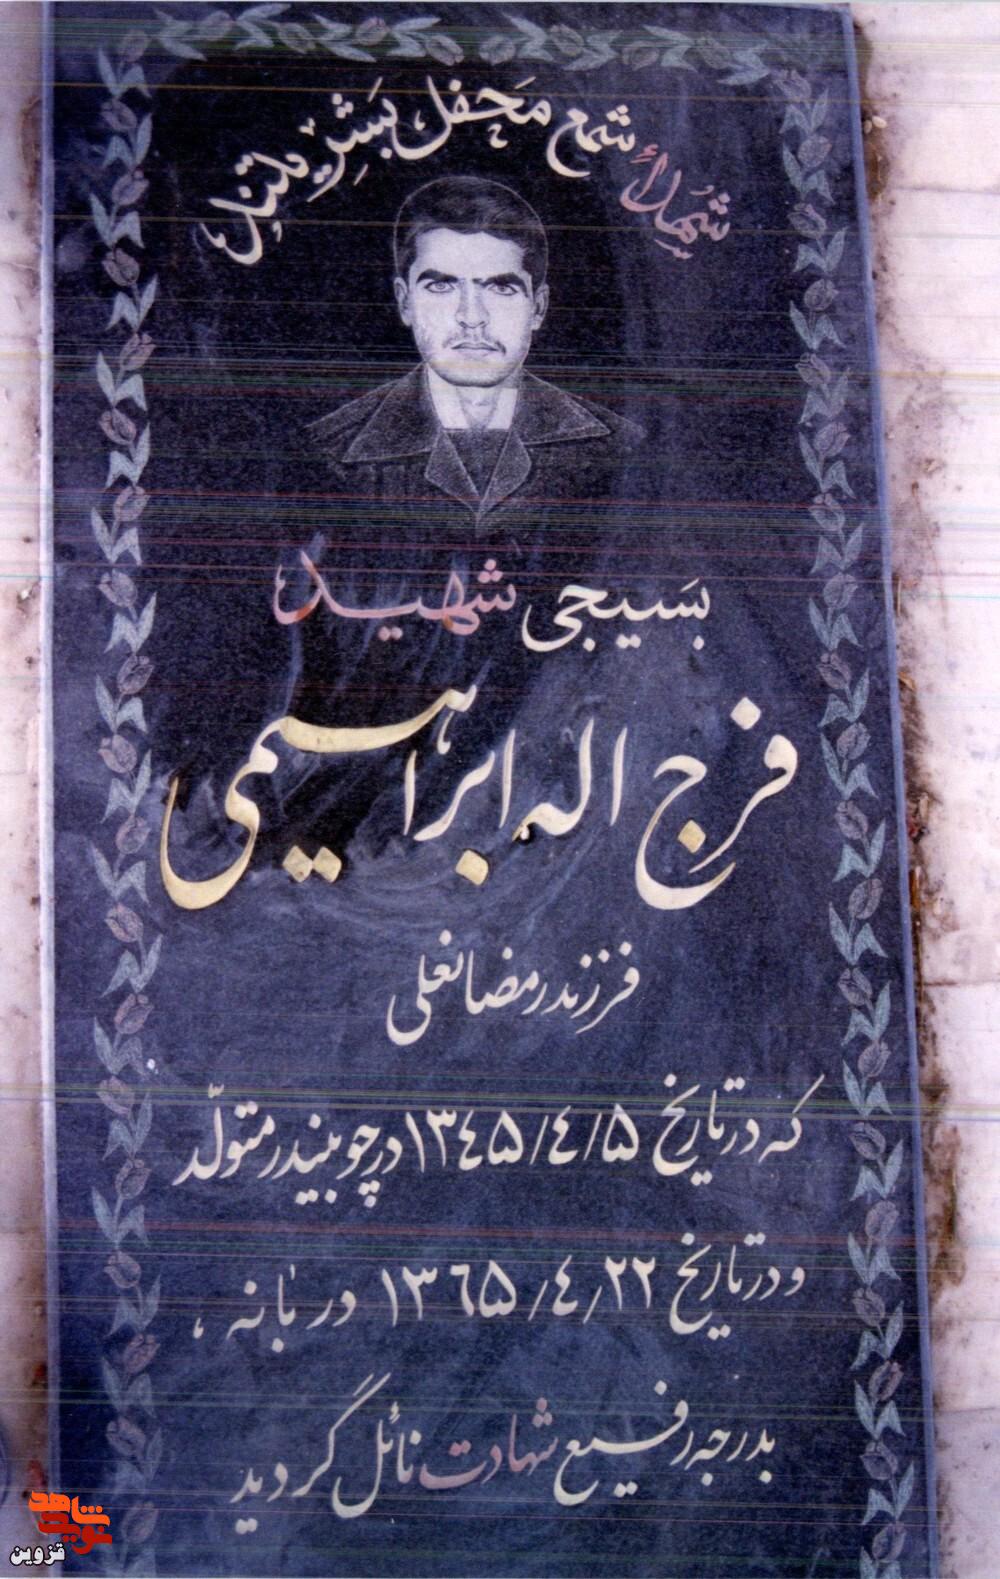 شهداء شمع محفل بشریتند
بسیجی شهید
فرج اله ابراهیمی
فرزند رمضانعلی
که در تاریخ ۱۳۴۵/۴/۵ در چوبیندر متولّد
و در تاریخ ۱۳۶۵/۴/۲۲ در بانه
بدرجه رفیع شهادت نائل گردید
نوید شاهد
قزوین